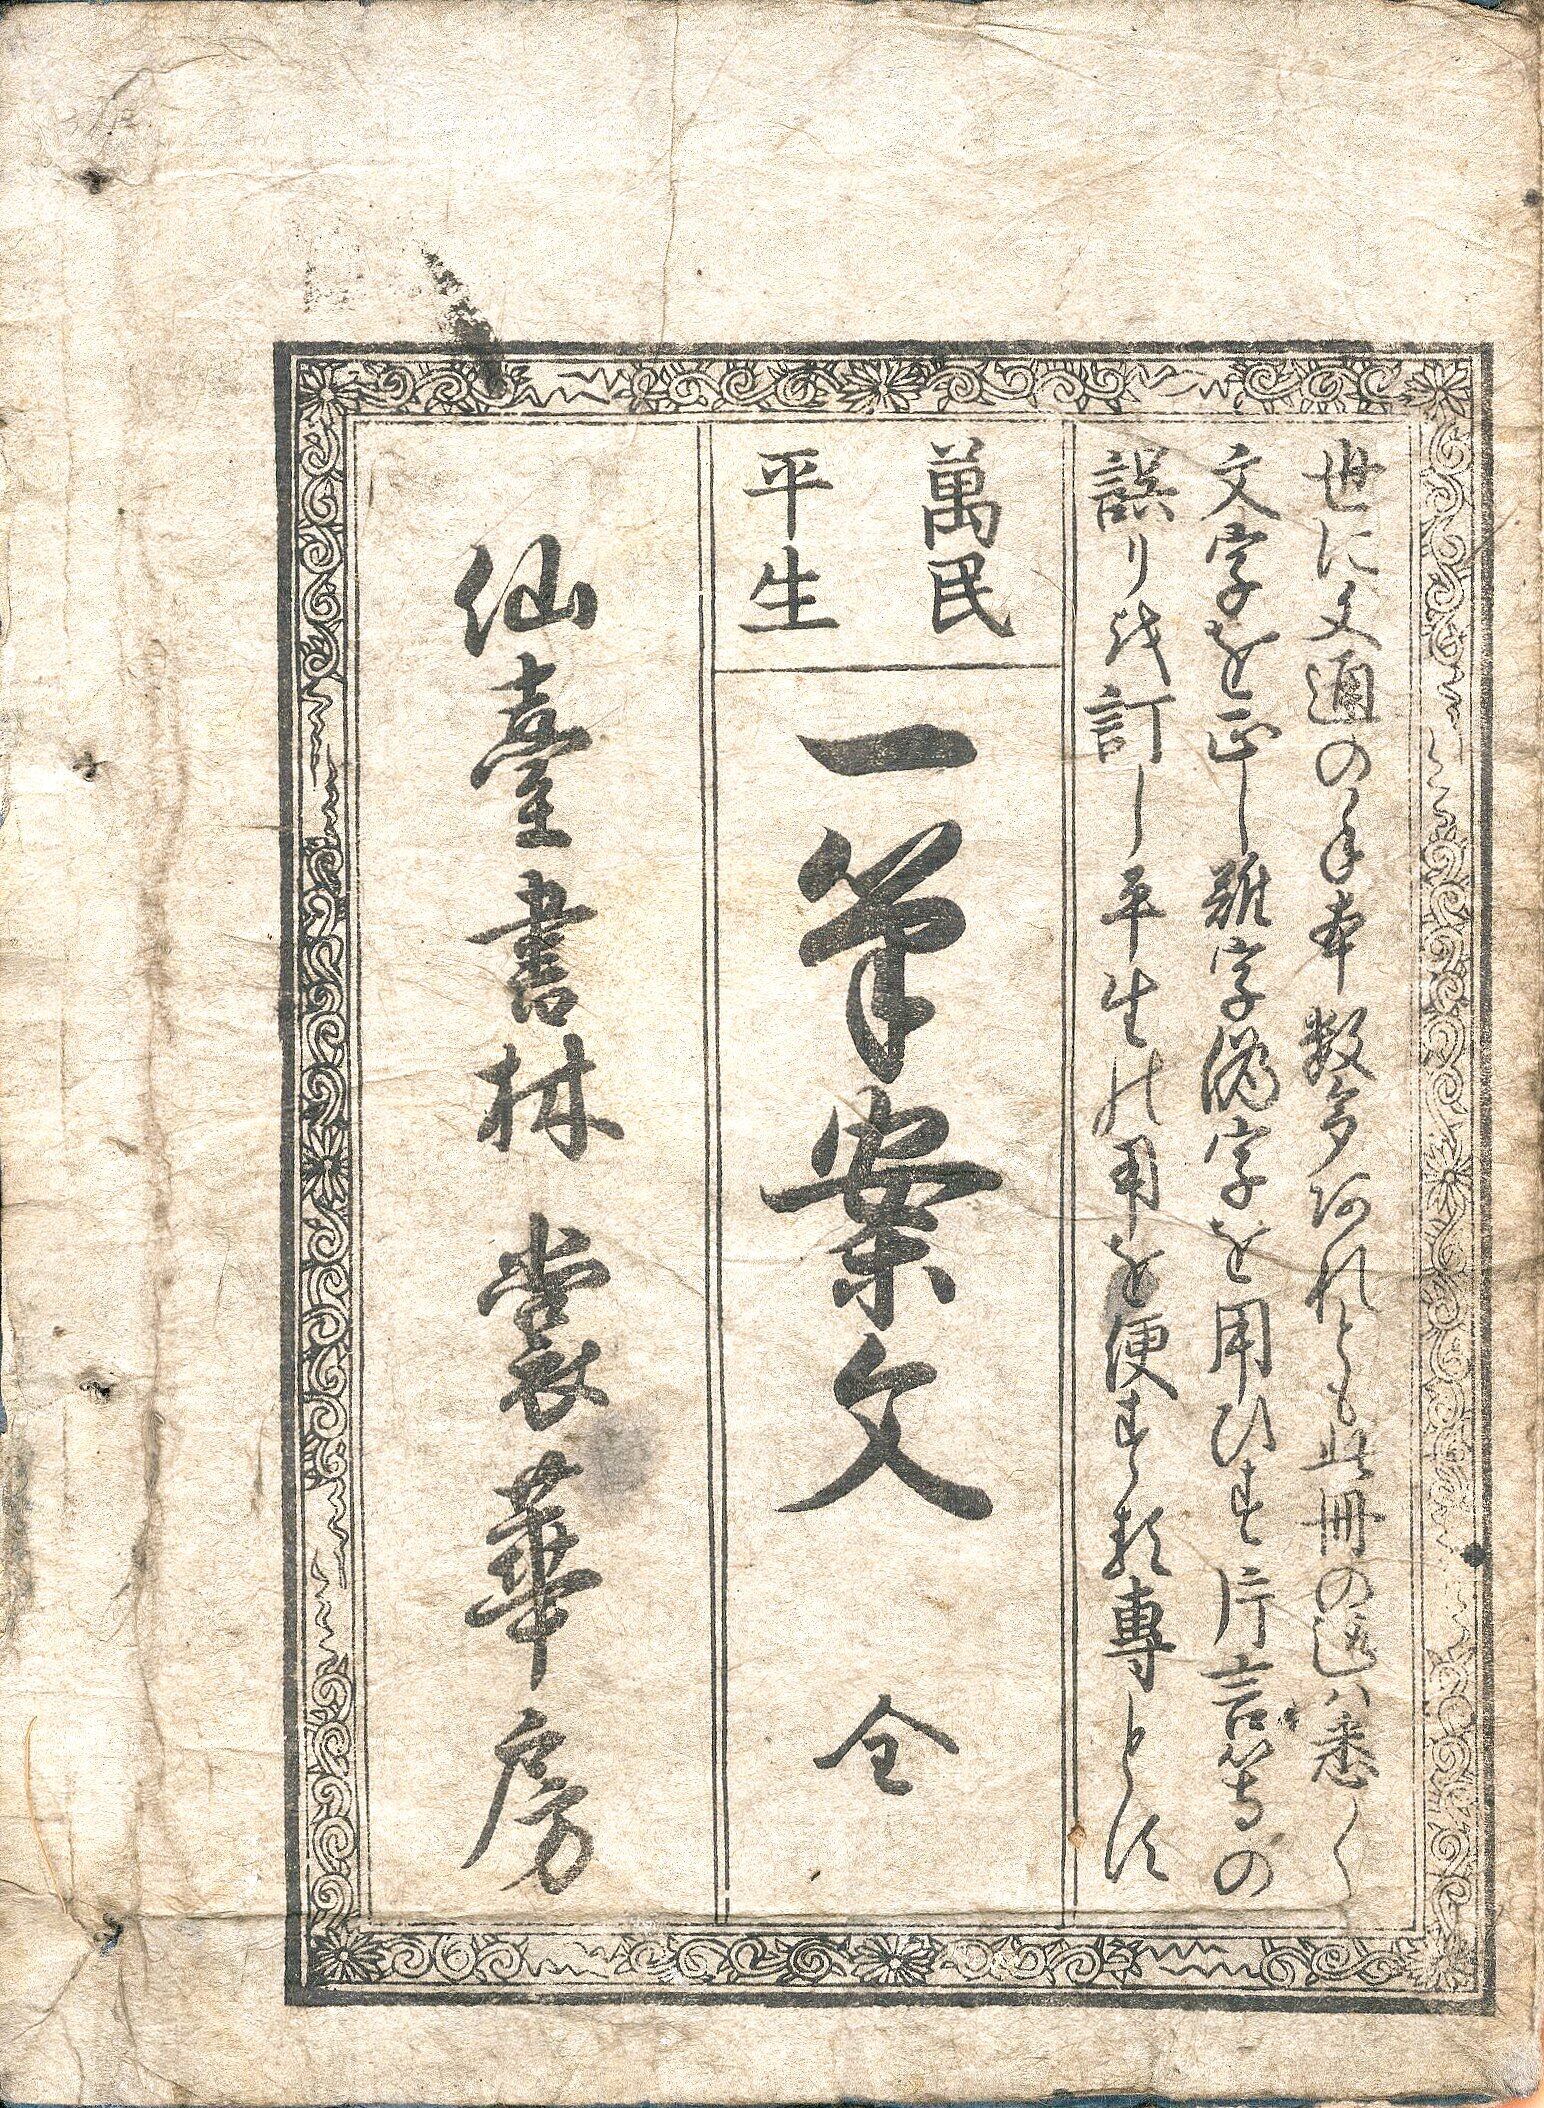 世に文通の手本数多阿れとも此冊の選ハ悉く
文字を正し雅字偽字を用ひす片言等の
誤り越訂し平生の用を便す類専とす
萬民
平生
一筆案文 全
仙臺書林 裳華房